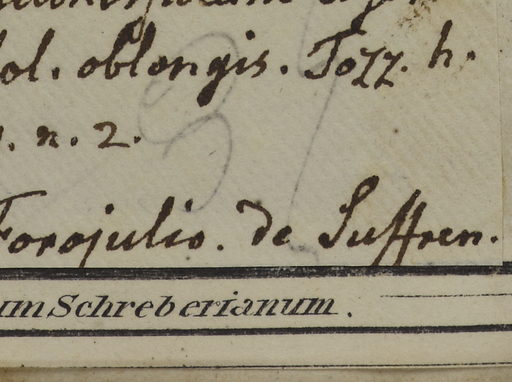 ol. oblongis. Tozz. h.
. n. 2.
Forojulio. de Suffren.
um Schreberianum.